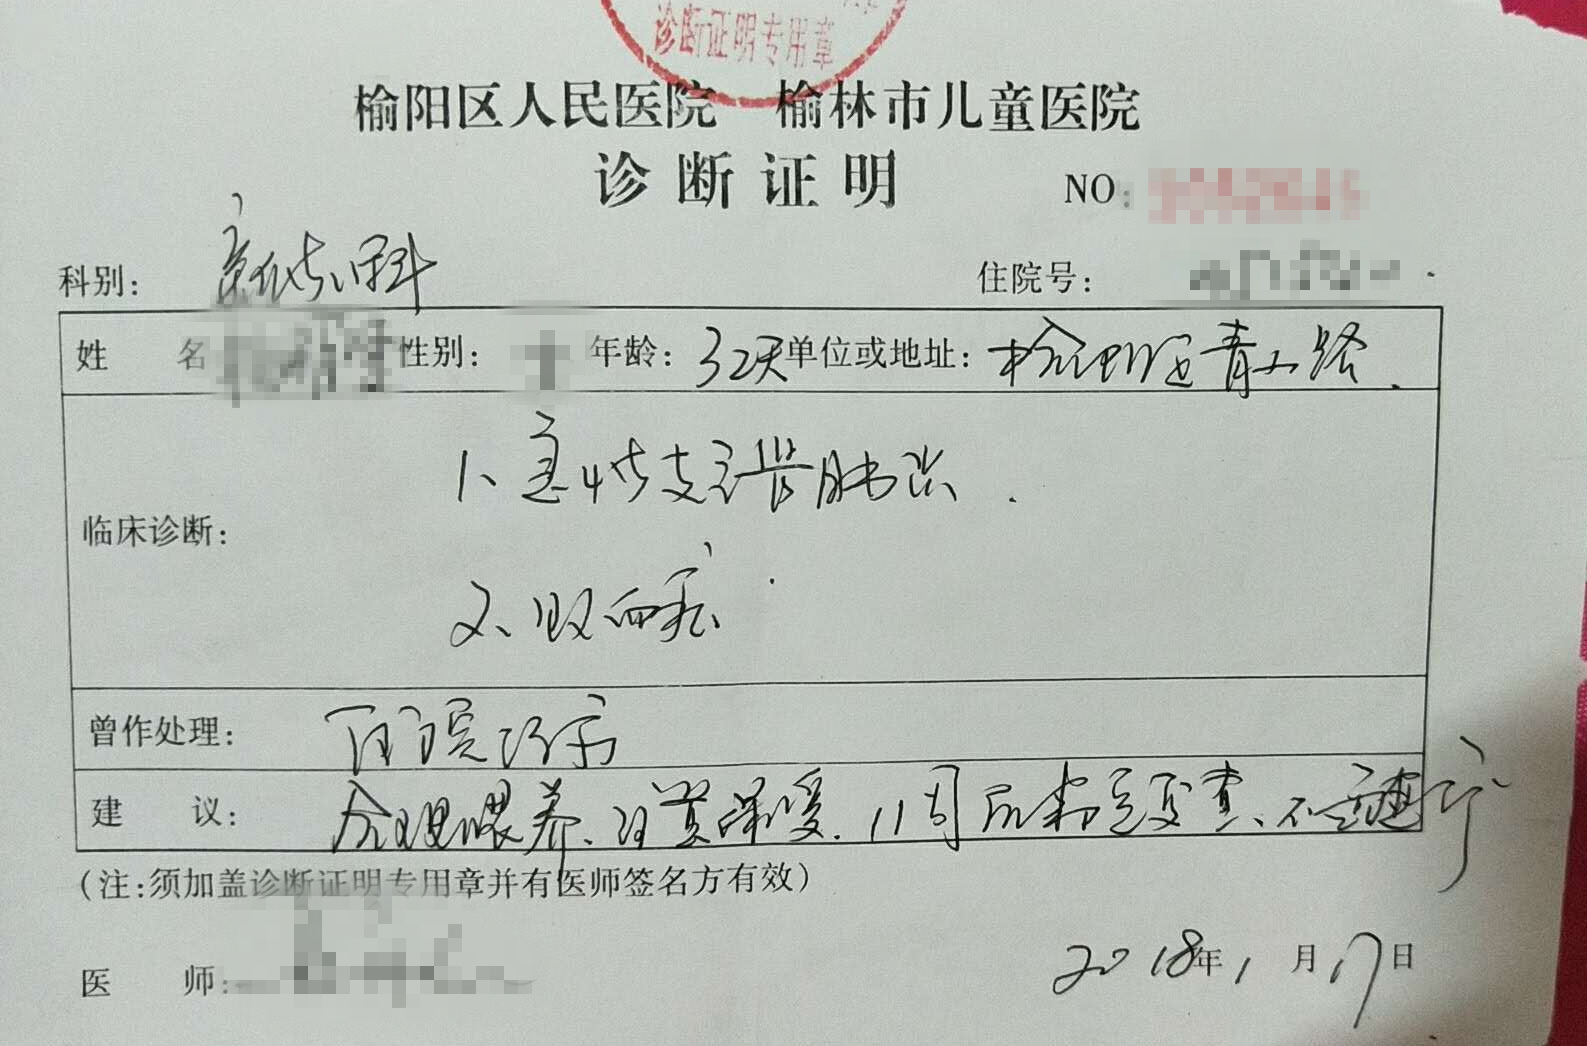 诊断证明专用章
榆阳区人民医院 榆林市儿童医院
诊断证明
NO:
科别: 科
住院号:
姓 名 性别: 年龄: 32天 单位或地址: 榆阳区青山路.
临床诊断:
1、急性支气管肺炎.
2、败血症.
曾作处理: 住院治疗
建 议: 合理喂养、注意保暖. 1周后来院复查、不适随诊
(注:须加盖诊断证明专用章并有医师签名方有效)
医 师:
2018年1月17日